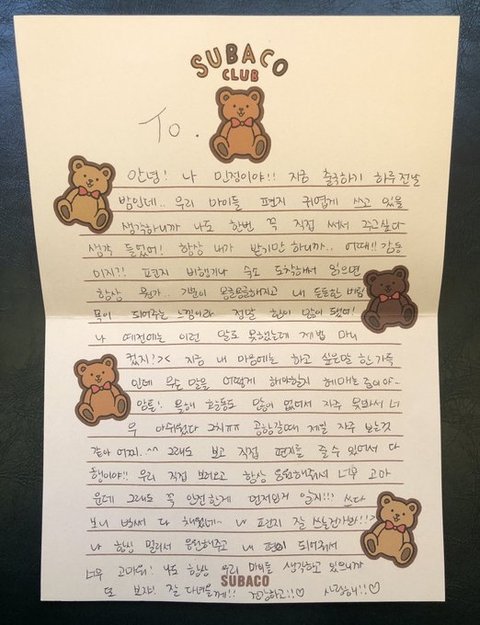 SUBACO
CLUB
To.
안녕! 나 민정이야!! 지금 출국하기 하루 전날
밤인데.. 우리 마이들 편지 귀엽게 쓰고 있을
생각하니까 나도 한번 꼭 직접 써서 주고싶다
생각 들었어! 항상 내가 받기만 하니까.. 어때!! 감동
이지?! 편지 비행기나 숙소 도착해서 읽으면
항상 뭔가.. 기분이 몽글몽글해지고 내 든든한 버팀
목이 되어주는 느낌이라 정말 힘이 많이 됐어!
나 예전에는 이런 말도 못했는데 제법 마니
컸지?>< 지금 내 마음에는 하고 싶은말 한가득
인데 무슨 말을 어떻게 해야할지 헤매는 중이야~
암튼! 올해 활동도 많이 없어서 자주 못봐서 너
무 아쉬웠다 그치ㅠㅠ 공항갈때 제일 자주 보는것
같아 어찌.. ^^ 그래도 보고 직접 편지를 줄 수 있어서 다
행이야!! 우리 직접 보러오고 항상 응원해줘서 너무 고마
운데 그래도 꼭 안전한게 먼저인거 알지!!! 쓰다
보니 벌써 다 채웠네~ 나 편지 잘 쓰는건가봐!!>
나 항상 믿어주고 응원해주고 내 편이 되어줘서
너무 고마워! 나도 항상 우리 마이들 생각하고 있으니까
또 보자! 잘 다녀올게!! 건강하고!!♡ 사랑해!!♡
SUBACO